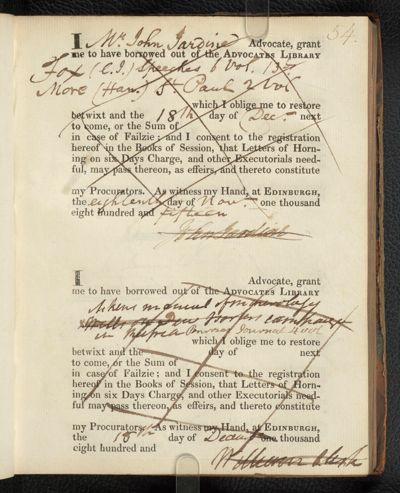 34.
I Mr. John Jardine Advocate, grant
me to have borrowed out of the ADVOCATES LIBRARY
Fox (C.J.) Speeches 6 Vol.
More (Han.) St. Paul 2 Vol
which I oblige me to restore
betwixt and the 18th day of Dec. next
to come, or the Sum of
in case of Failzie; and I consent to the registration
hereof in the Books of Session, that Letters of Horn-
ing on six Days Charge, and other Executorials need-
ful, may pass thereon, as effeirs, and thereto constitute
my Procurators. As witness my Hand, at EDINBURGH,
the eighteenth day of Nov. one thousand
eight hundred and fifteen
John Jardine
I Advocate, grant
me to have borrowed out of the ADVOCATES LIBRARY
manual of mineralogy
in Journal 2 vol
which I oblige me to restore
betwixt and the day of next
to come, or the Sum of
in case of Failzie; and I consent to the registration
hereof in the Books of Session, that Letters of Horn-
ing on six Days Charge, and other Executorials need-
ful may pass thereon, as effeirs, and thereto constitute
my Procurators. As witness my Hand, at EDINBURGH,
the 18th day of one thousand
eight hundred and